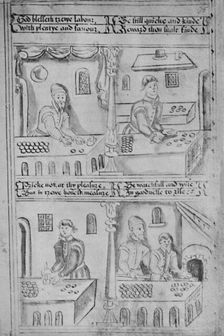 God blesseth trewe labor
with plentye and favour.
Be still quicke and kinde
Reward thou shalt finde
Pricke not at thy pleasure
But in trewe honest measure
Be watchfull and wise
In goodnesse to rise